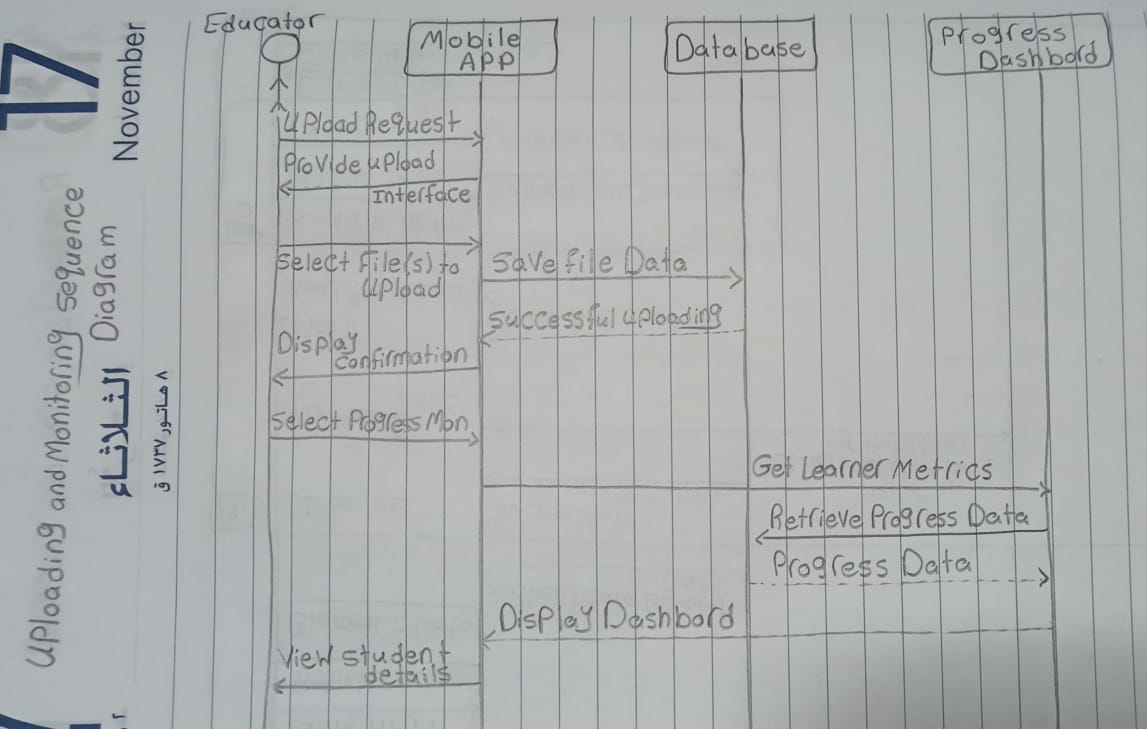 17
November
الثلاثاء
٨ هاتور ١٧٣٧ ق
UPloading and Monitoring Sequence
Diagram
Educator
Mobile
APP
Database
Progress
Dashbord
UPload Request
Provide uPload
Interface
Select File(s) to
UPload
Save file Data
Successful uploading
Display
Confirmation
Select Progress Mon
Get Learner Metrics
Retrieve Progress Data
Progress Data
Display Dashbord
View student
details